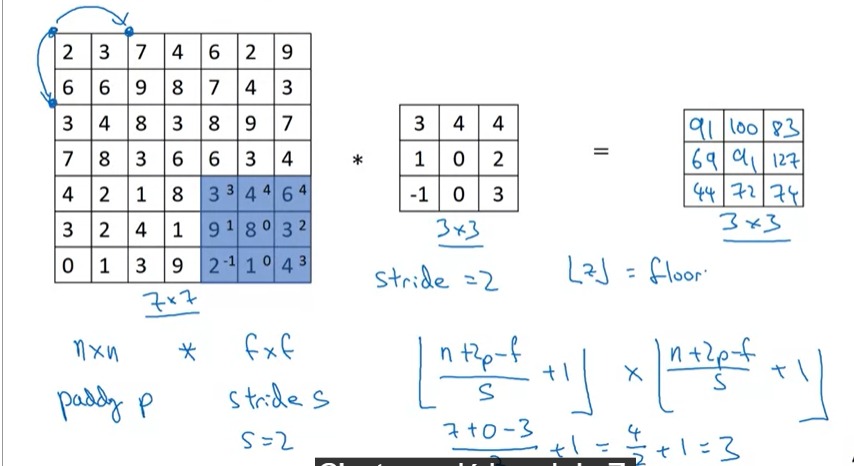 2 3 7 4 6 2 9
6 6 9 8 7 4 3
3 4 8 3 8 9 7
7 8 3 6 6 3 4
4 2 1 8 3 3 4 4 6 4
3 2 4 1 9 1 8 0 3 2
0 1 3 9 2 -1 1 0 4 3
7×7
*
3 4 4
1 0 2
-1 0 3
3×3
=
91 100 83
69 91 127
44 72 74
3×3
stride = 2
⌊z⌋ = floor
n×n * f×f
padding p stride s
s=2
⌊(n+2p-f)/s + 1⌋ × ⌊(n+2p-f)/s + 1⌋
(7+0-3)/2 + 1 = 4/2 + 1 = 3